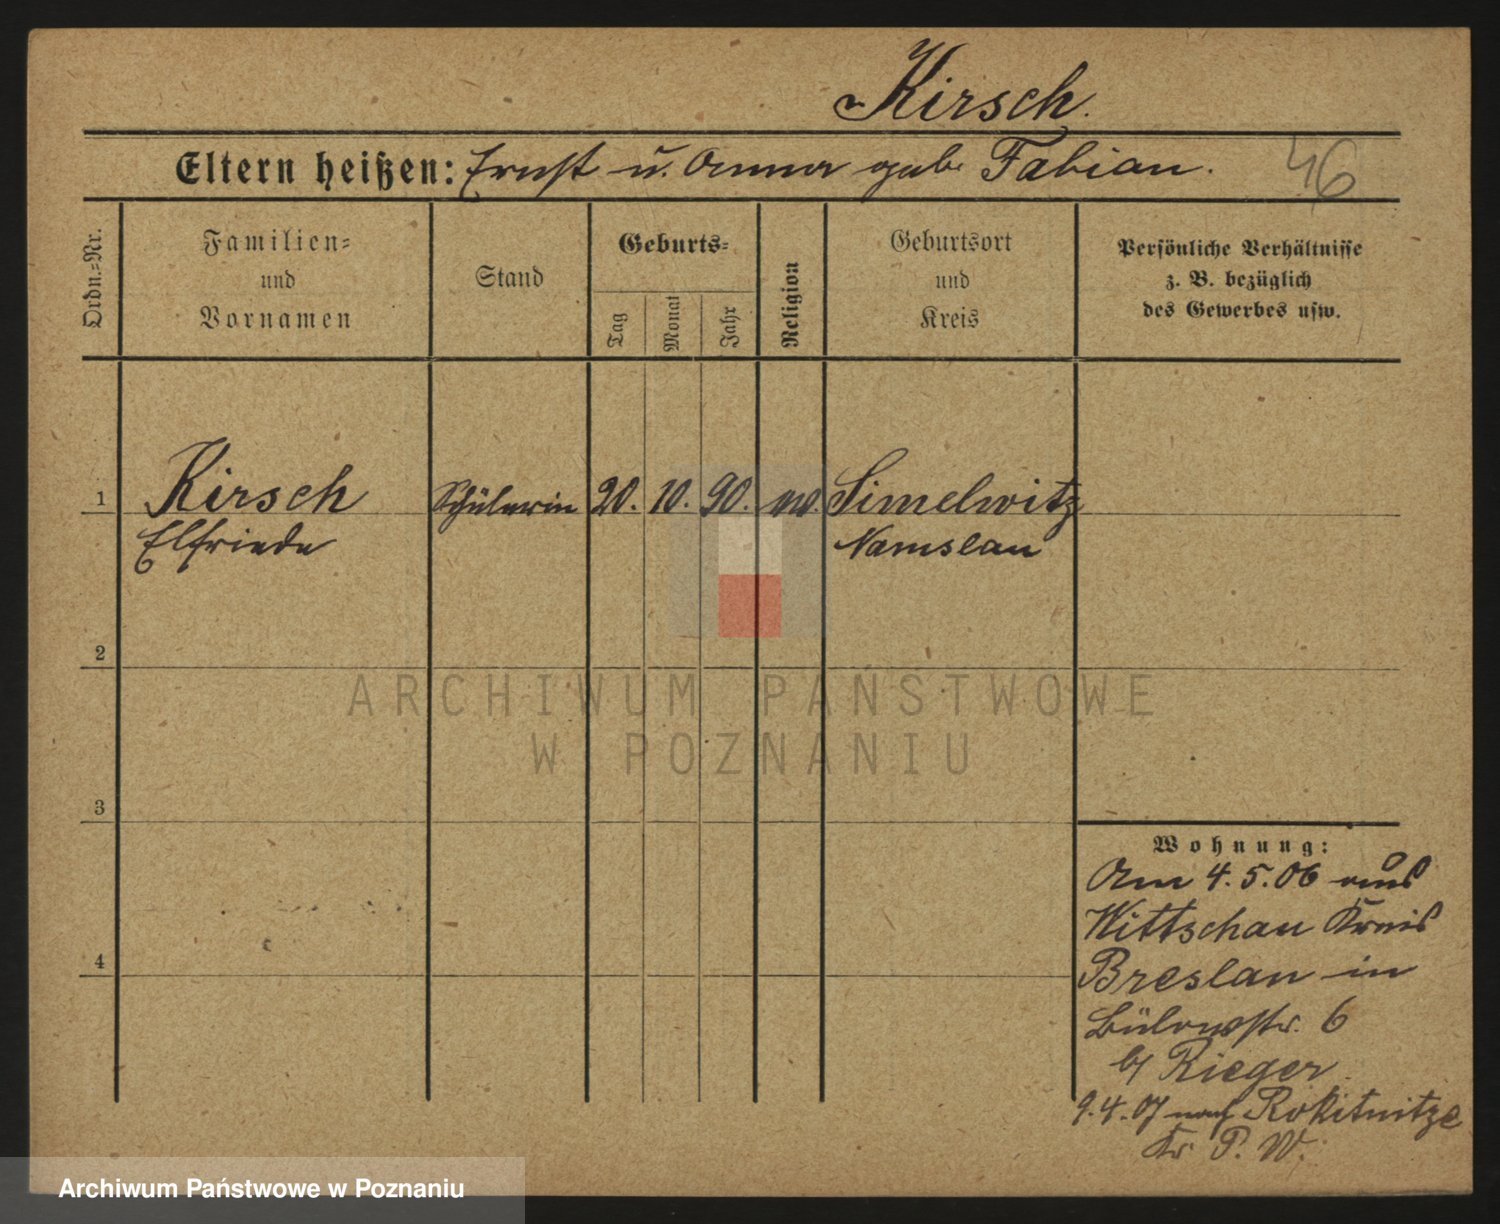 Kirsch.
Eltern heißen: Ernst u. Anna geb. Fabian.
46
Ordn.=Nr.
Familien=
und
Vornamen
Stand
Geburts=
Tag
Monat
Jahr
Religion
Geburtsort
und
Kreis
Persönliche Verhältnisse
z. B. bezüglich
des Gewerbes usw.
1
Kirsch
Elfriede
Schülerin
20.
10.
90.
ev.
Simelwitz
Namslau
2
3
4
Wohnung:
Am 4.5.06 aus
Wittschau Kreis
Breslau in
Bülowstr. 6
b/ Rieger
9.4.07 nach Rokitnitze
Kr. P. W.
ARCHIWUM PAŃSTWOWE
W POZNANIU
Archiwum Państwowe w Poznaniu